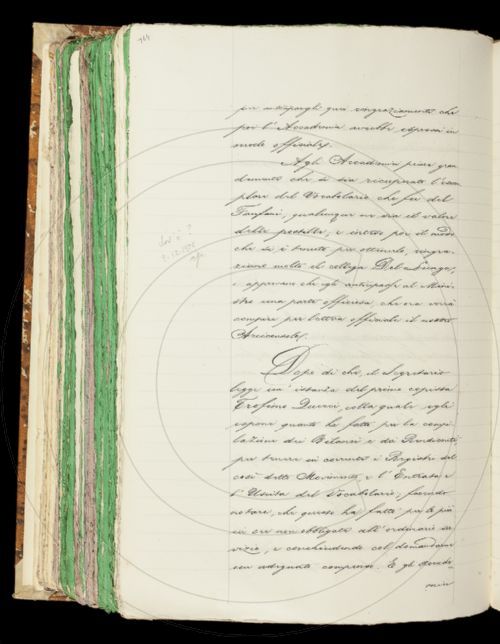 per anticipargli quei ringraziamenti che
poi l'Accademia avrebbe espressi in
modo officiale.
Agli Accademici piace gran
demente che si sia ricuperato l'esem
plare del Vocabolario che fu del
Tanfani, qualunque ne sia il valore
delle postille; e intesto poi il modo
che si è tenuto per ottenerlo, ringra-
ziano molto il collega Del Lungo,
e approvano che egli anticipasse al Mini-
stro una parte officiosa, che ora verrà
compiere per lettera officiale il nostro
Arciconsolo.
Dopo di che, il Segretario
legge un'istanza del primo copista
Trofimo Querci, colla quale egli
espone quanto ha fatto per la compi-
lazione dei Bilanci e dei Rendiconti
per tenere in corrente i Registri del
così detto Movimento, e l'Entrata e
l'Uscita del Vocabolario; facendo
notare, che questo ha fatto per lo più
in ore non obbligate all'ordinario ser
vizio, e conchiudendo col domandarne
un adeguato compenso. E gli Accade-
mici